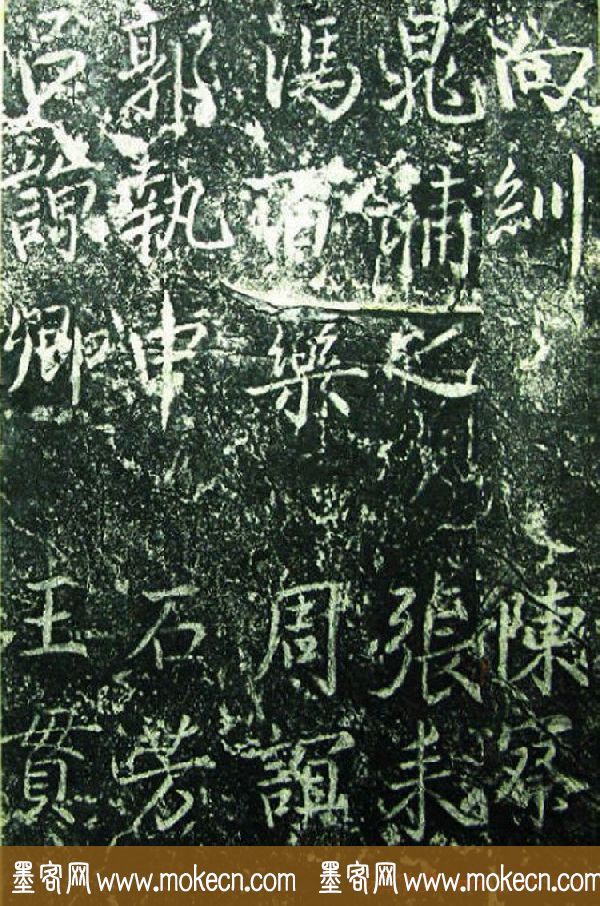 尚紃 陳察
晁補之 張耒
馮百藥 周誼
郭執中 石芳
呂諒卿 王貫
墨客网 www.mokecn.com 墨客网 www.mokecn.com